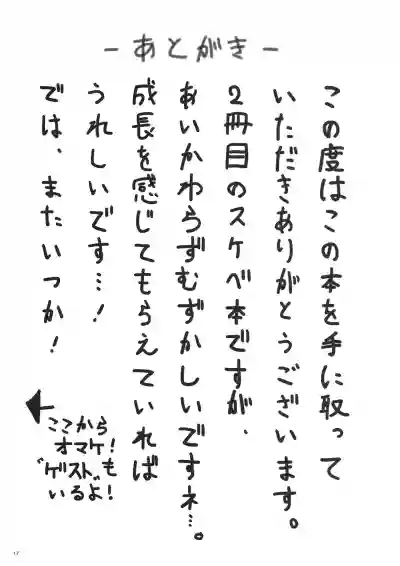 －あとがき－
この度はこの本を手に取って
いただきありがとうございます。
2冊目のスケベ本ですが、
あいかわらずむずかしいですネ…。
成長を感じてもらえていれば
うれしいです…！
では、またいつか！
ここから
オマケ！
“ゲスト”も
いるよ！
17